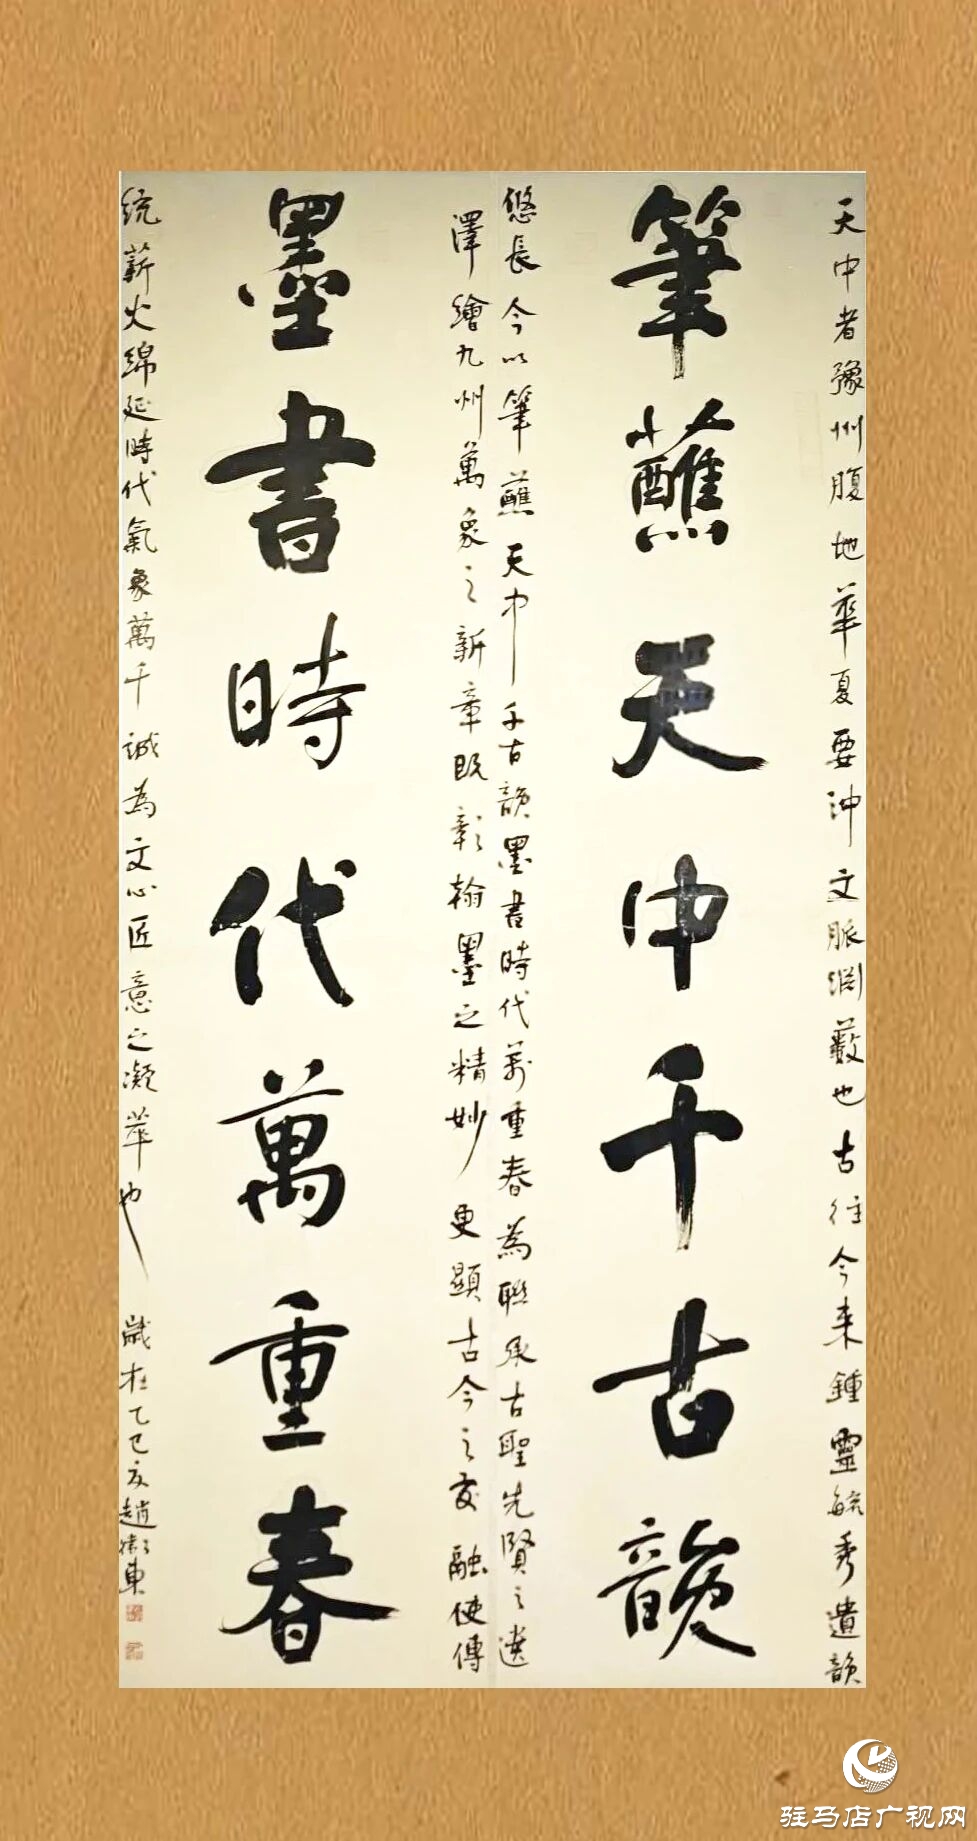 天中者豫州腹地華夏要沖文脈淵藪也古往今来鍾靈毓秀遺韻
筆蘸天中千古韻
悠長今以筆蘸天中千古韻墨書時代萬重春為聯承古聖先賢之遺
澤繪九州萬象之新章既彰翰墨之精妙更顯古今之交融使傳
墨書時代萬重春
統薪火綿延時代氣象萬千誠為文心匠意之凝華也
歲在乙巳夏趙衛東
驻马店广视网